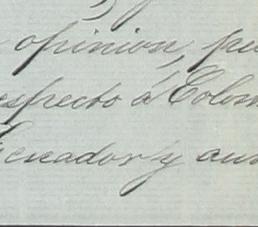 opinion, pu
especto á Colom
cuador y aun